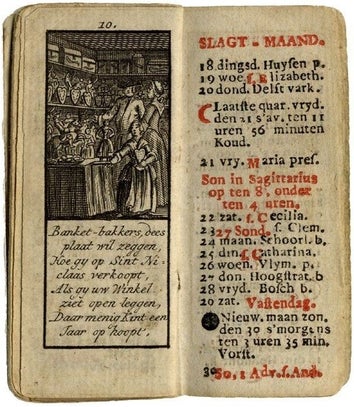 10.
Banket-bakkers, dees
plaat wil zeggen,
Hoe gy op Sint Ni-
claas verkoopt,
Als gy uw Winkel
ziet open leggen,
Daar menig Kint een
Jaar op hoopt.
SLAGT-MAAND.
18 dingsd. Huysen p.
19 woe. s. Elizabeth.
20 dond. Delft vark.
Laatste quar. vryd.
den 21 s'av. ten 11
uren 56 minuten
Koud.
21 vry. Maria pres.
Son in Sagittarius
op ten 8, onder
ten 4 uren.
22 zat. s. Cecilia.
23 27 Sond. s. Clem.
24 maan. Schoorl. b.
25 din. s. Catharina.
26 woen. Vlym. p.
27 don. Hoogstrat. b
28 vryd. Bosch b
29 zat. Vastendag.
Nieuw. maan zon.
den 30 s'morgens
ten 3 uren 35 min.
Vorst.
30 So, 1 Adv. s. And.